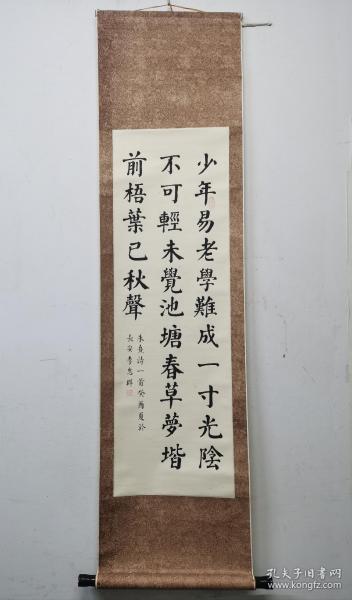 少年易老學難成一寸光陰
不可輕未覺池塘春草夢堦
前梧葉已秋聲
朱熹詩一首癸酉夏於
長安李
孔夫子旧书网
www.kongfz.com